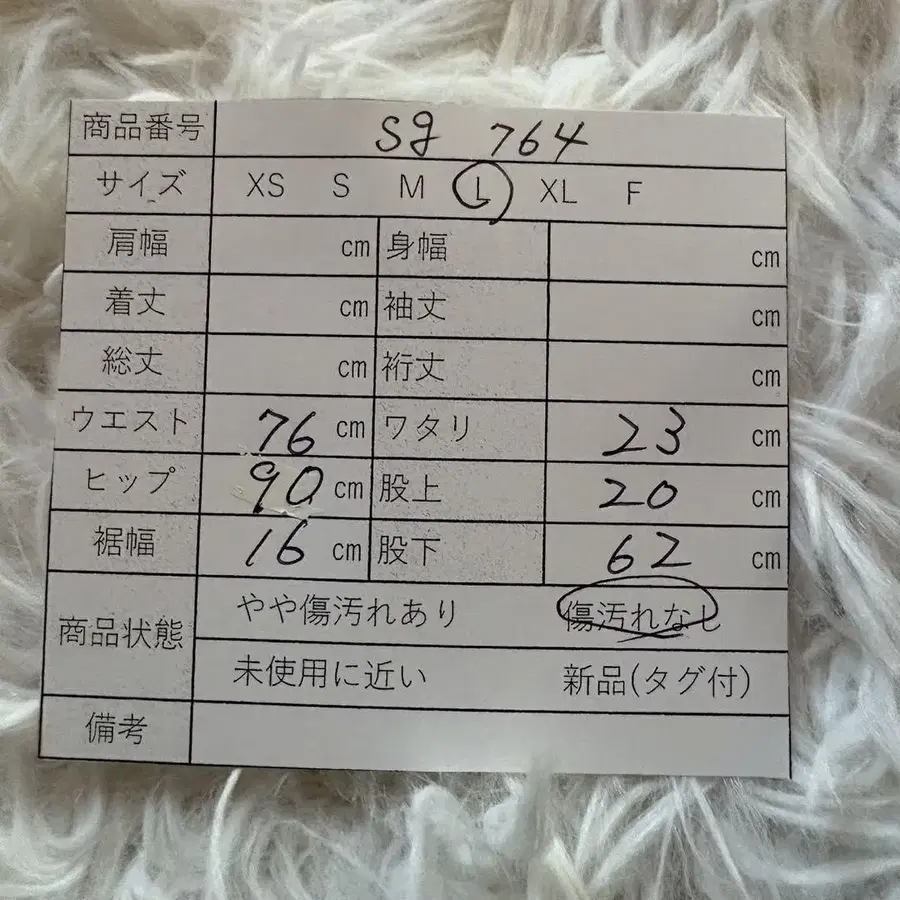 商品番号 sg 764
サイズ XS S M L XL F
肩幅 cm 身幅 cm
着丈 cm 袖丈 cm
総丈 cm 裄丈 cm
ウエスト 76 cm ワタリ 23 cm
ヒップ 90 cm 股上 20 cm
裾幅 16 cm 股下 62 cm
商品状態 やや傷汚れあり 傷汚れなし
未使用に近い 新品(タグ付)
備考